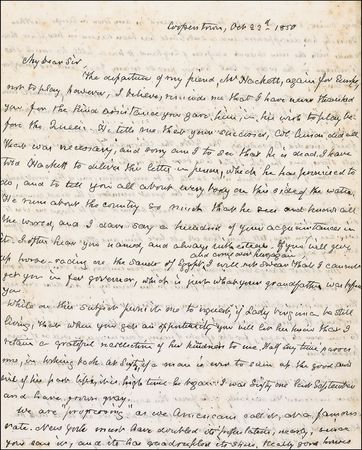 Cooperstown, Oct 22d 1850
My dear Sir,
The departure of my friend Mr Hackett, again for Europe,
not to play however, I believe, reminds me that I have never thanked
you for the kind assistance you gave him, in his wish to play be-
fore the Queen. He tells me that your successor, Col. did all
that was necessary, and sorry am I to see that he is dead. I have
told Hackett to deliver this letter in person, which he has promised to
do, and to tell you all about every body on this side of the water.
He runs about the country so much that he sees and knows all
the world, and I dare say a hundred of your acquaintances in
it. I often hear you named, and always with esteem. If you will give
and come over here again
up race-racing on the Sands of Egypt, I will not swear that I cannot
get you in for governor, which is just what your grandfather was before
you.
While on this subject permit me to request, if Lady Virginia be still
living, that when you get an opportunity you will let her know that I
retain a grateful recollection of her kindness to me. Half my time passes
me, in looking back. At sixty, if a man is ever to see the good and
evil of his past life, it is high time to begin. I was sixty one last September
and have grown gray.
We are "progressing" as we Americans call it, at a famous
rate. New York must have doubled its population, nearly, since
you saw it, and it has quadrupled its show. Really some houses